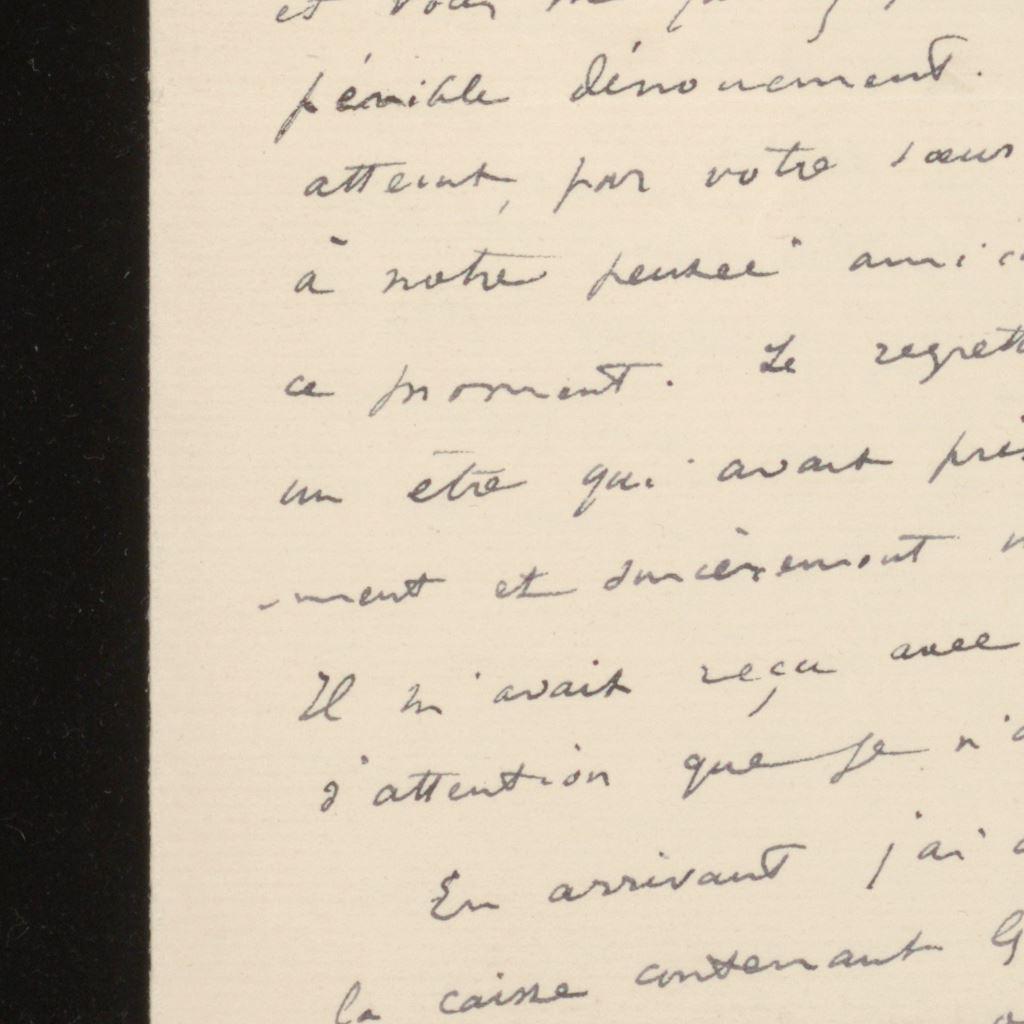 et vous
pénible dénouement.
atteint, par votre sœur
à notre pensée amic
ce moment. Le regrett
un être qui avait pris
-ment et sincèrement
Il m'avait reçu avec
d'attention que je n'a
En arrivant j'ai
la caisse contenant G